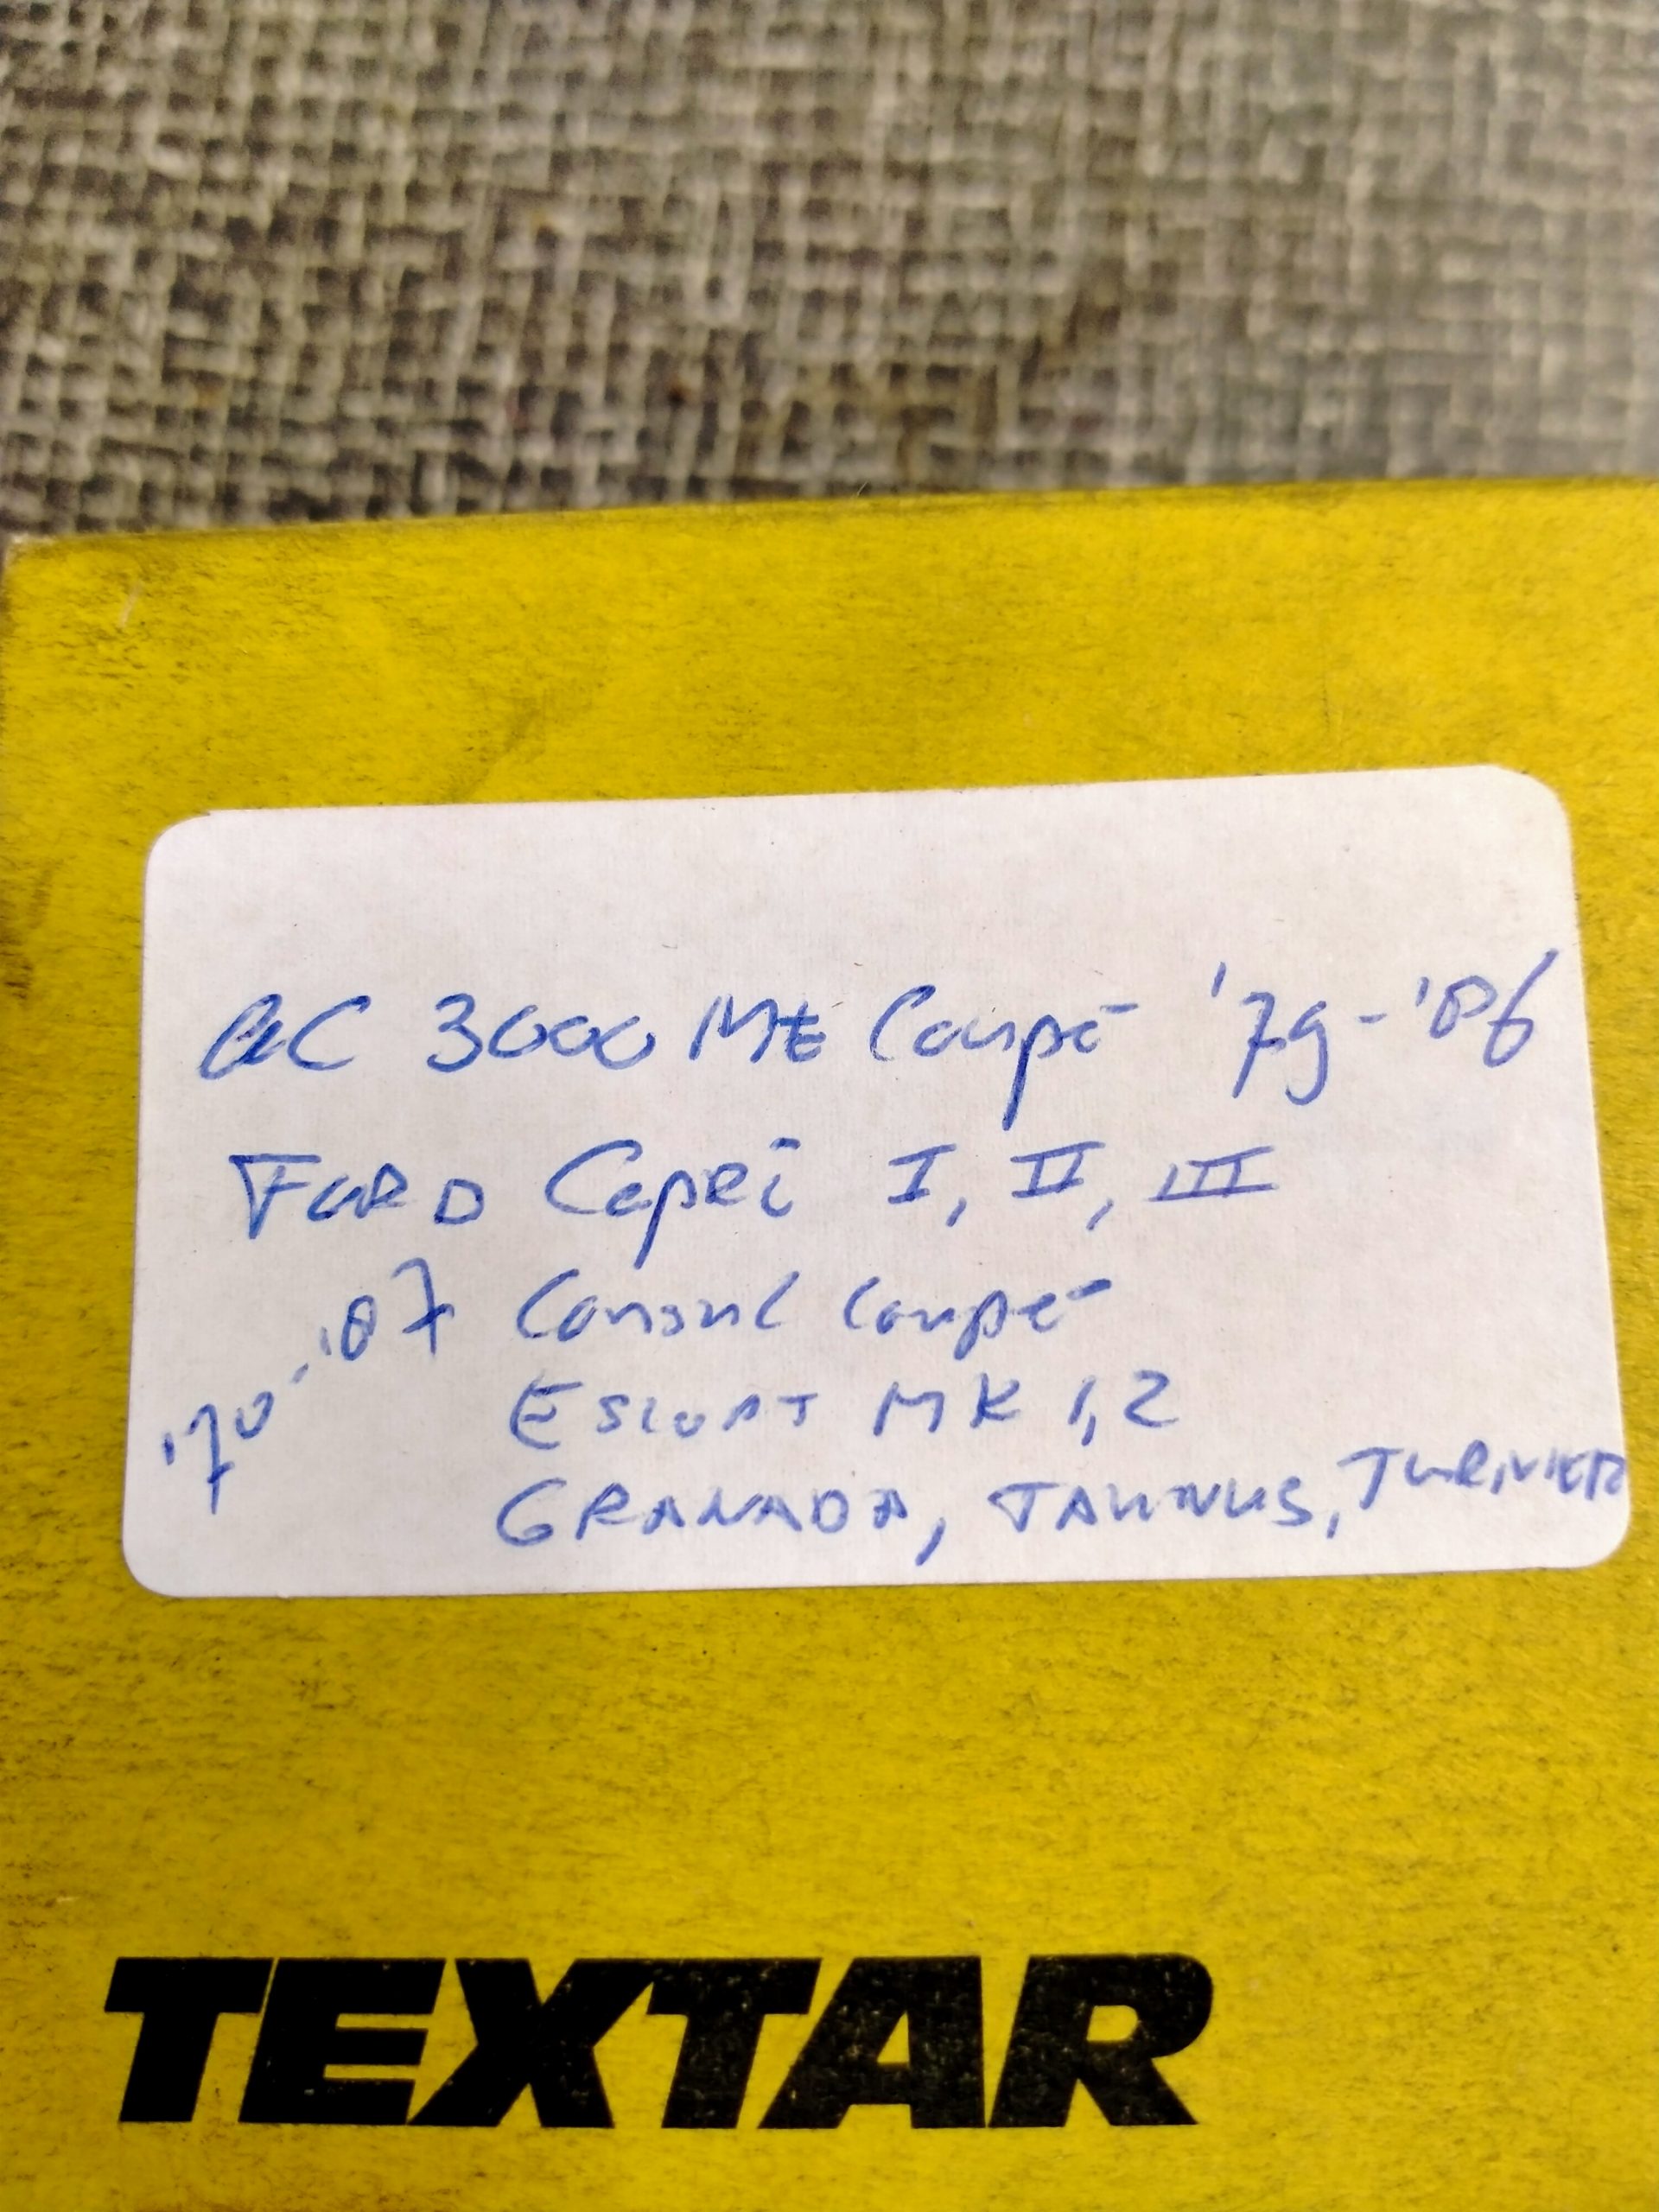 AC 3000 ME Coupé '79-'86
FORD Capri I, II, III
'70-'87 Consul Coupé
ESCORT MK 1,2
GRANADA, TAUNUS, TURNIER
TEXTAR